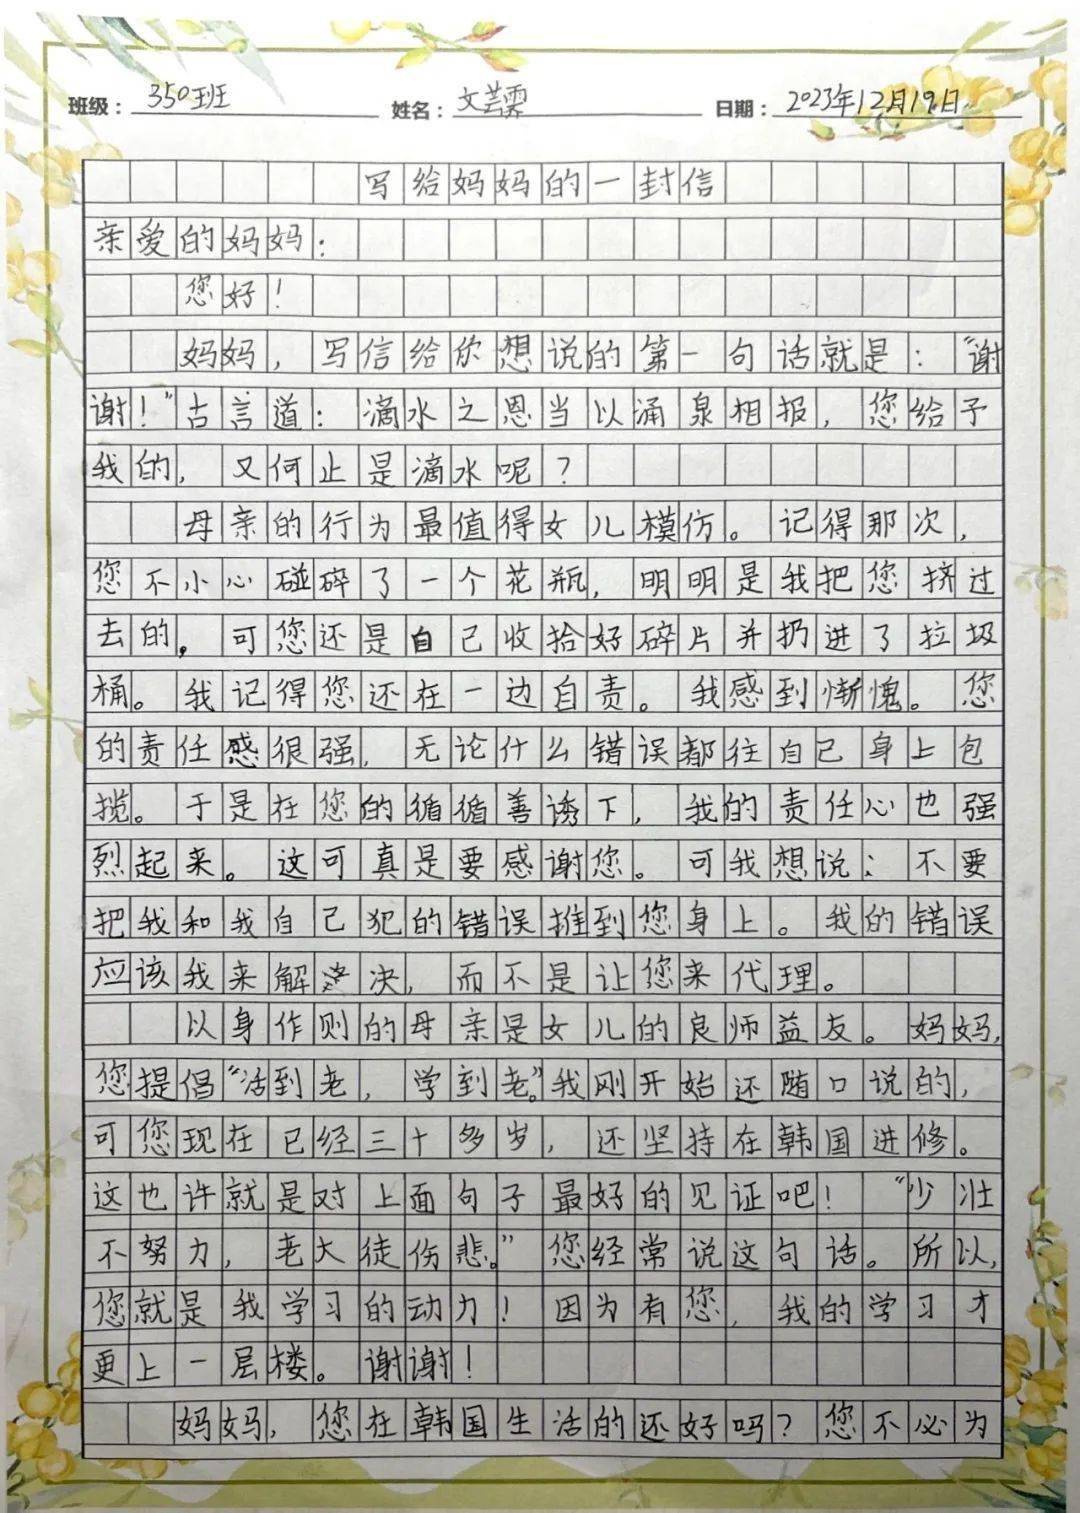 班级：350班 姓名：文芸霈 日期：2023年12月19日
写给妈妈的一封信
亲爱的妈妈：
您好！
妈妈，写信给你想说的第一句话就是：“谢
谢！”古言道：滴水之恩当以涌泉相报，您给予
我的，又何止是滴水呢？
母亲的行为最值得女儿模仿。记得那次，
您不小心碰碎了一个花瓶，明明是我把您挤过
去的，可您还是自己收拾好碎片并扔进了垃圾
桶。我记得您还在一边自责。我感到惭愧。您
的责任感很强，无论什么错误都往自己身上包
揽。于是在您的循循善诱下，我的责任心也强
烈起来。这可真是要感谢您。可我想说：不要
把我和我自己犯的错误推到您身上。我的错误
应该我来解决，而不是让您来代理。
以身作则的母亲是女儿的良师益友。妈妈，
您提倡“活到老，学到老。”我刚开始还随口说的，
可您现在已经三十多岁，还坚持在韩国进修。
这也许就是对上面句子最好的见证吧！“少壮
不努力，老大徒伤悲。”您经常说这句话。所以，
您就是我学习的动力！因为有您，我的学习才
更上一层楼。谢谢！
妈妈，您在韩国生活的还好吗？您不必为